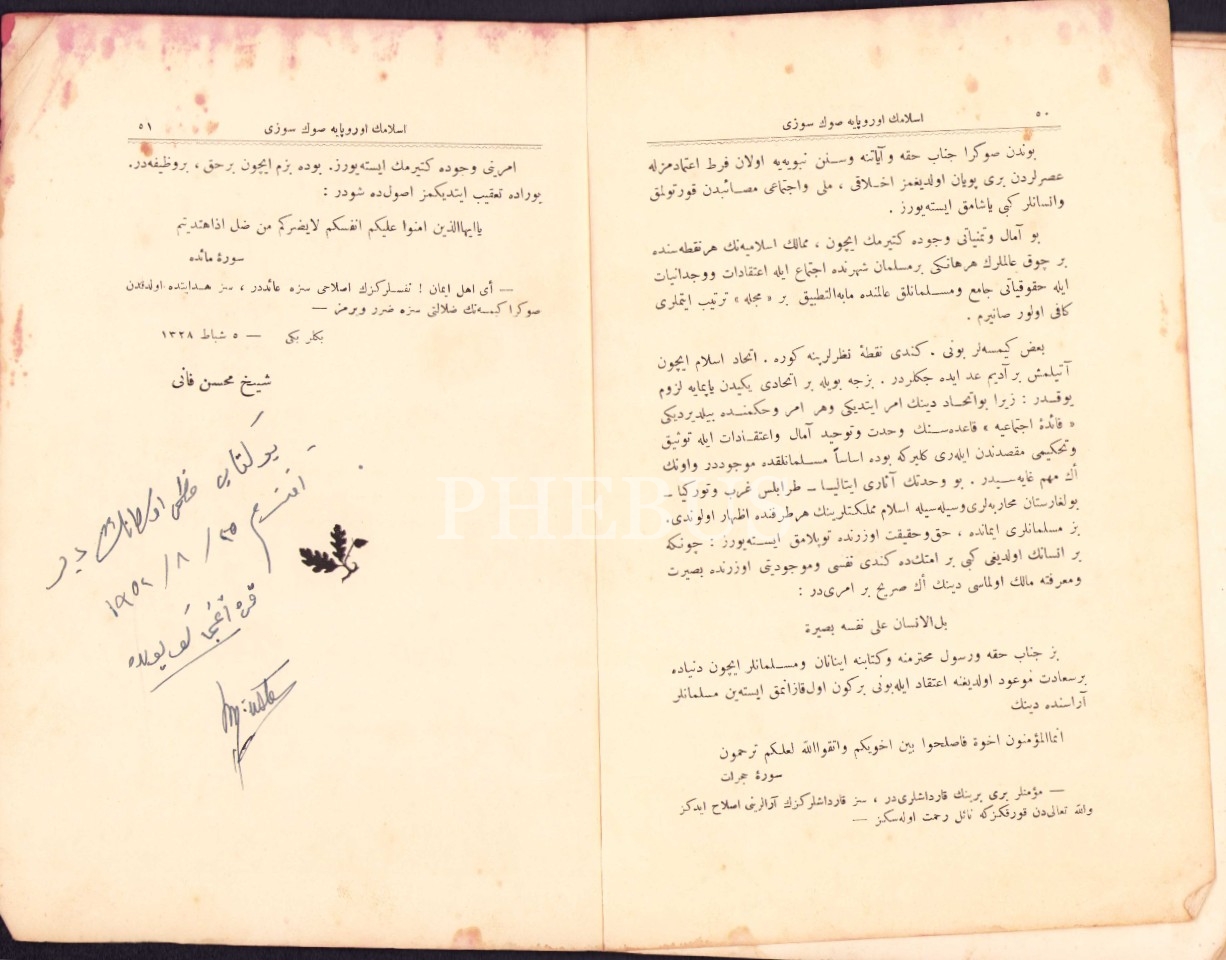 اسلامك اوروپایه صوك سوزی
٥٠
بوندن صوكرا جناب حقه و آیاتنه وسنن نبویه‌یه اولان فرط اعتمادمزله
عصرلردن بری پویان اولدیغمز اخلاقی ، ملی واجتماعی مصائبدن قورتولمق
وانسانلر كبی یاشامق ایسته‌یورز .
بو آمال وتمنیاتی وجوده كتیرمك ایچون ، ممالك اسلامیه‌نك هر نقطه‌سنده
بر چوق عالملرك هرهانكی بر مسلمان شهرنده اجتماع ایله اعتقادات ووجدانیات
ایله حقوقیاتی جامع ومسلمانلق عالمنده مابه‌التطبیق بر « مجله » ترتیب ایتملری
كافی اولور صانیرم .
بعض كیمسه‌لر بونی . كندی نقطهٔ نظرلرینه كوره . اتحاد اسلام ایچون
آتیلمش بر آدیم عد ایده جكلردر . بزجه بویله بر اتحادی یكیدن یاپمایه لزوم
یوقدر : زیرا بواتحاد دینك امر ایتدیكی وهر امر وحكمنده بیلدیردیكی
« فائدهٔ اجتماعیه » قاعده‌سنك وحدت وتوحید آمال واعتقادات ایله توثیق
وتحكیمی مقصدندن ایله‌ری كلیركه بوده اساساً مسلمانلقده موجوددر واونك
أك مهم غایه‌سیدر . بو وحدتك آثاری ایتالیا ـ طرابلس غرب وتوركیا ـ
بولغارستان محاربه‌لری وسیله‌سیله اسلام مملكتلرینك هر طرفنده اظهار اولوندی.
بز مسلمانلری ایمانده ، حق وحقیقت اوزرنده توپلامق ایسته‌یورز : چونكه
بر انسانك اولدیغی كبی بر امتك‌ده كندی نفسی وموجودیتی اوزرنده بصیرت
ومعرفته مالك اولماسی دینك أك صریح بر امری‌در :
بل‌الانسان علی نفسه بصیرة
بز جناب حقه ورسول محترمنه وكتابنه اینانان ومسلمانلر ایچون دنیاده
بر سعادت موعود اولدیغنه اعتقاد ایله‌بونی بركون اول‌قازانمق ایسته‌ین مسلمانلر
آراسنده دینك
انماالمؤمنون اخوة فاصلحوا بین اخویكم واتقواالله لعلكم ترحمون
سورهٔ حجرات
— مؤمنلر بری برینك قارداشلری‌در ، سز قارداشلركزك آرالرینی اصلاح ایدكز
والله تعالی‌دن قورقكزكه نائل رحمت اوله‌سكز —
اسلامك اوروپایه صوك سوزی
٥١
امرینی وجوده كتیرمك ایسته‌یورز. بوده بزم ایچون بر حق ، بر وظیفه‌در.
بوراده تعقیب ایتدیكمز اصول‌ده شودر :
یاایهاالذین امنوا علیكم انفسكم لایضركم من ضل اذاهتدیتم
سورهٔ مائده
— أی اهل ایمان ! نفسلركزك اصلاحی سزه عائددر ، سز هدایتده اولدقدن
صوكرا كیمسه‌نك ضلالتی سزه ضرر ویرمز —
بكلر بكی — ٥ شباط ١٣٢٨
شیخ محسن فانی
بو كتاب
افندم ٢٥ / ٨ / ١٩٥٢
PHEBUS